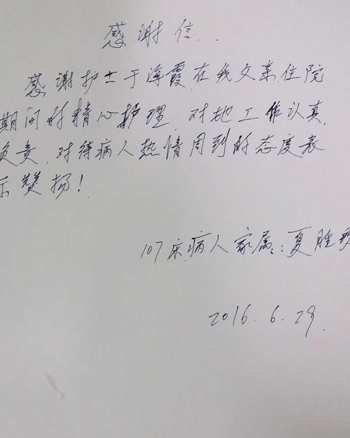 感谢信..
感谢护士于海霞在我父亲住院
期间的精心护理,对她工作认真,
负责,对待病人热情周到的态度表
示赞扬!
107床病人家属:夏胜
2016.6.29